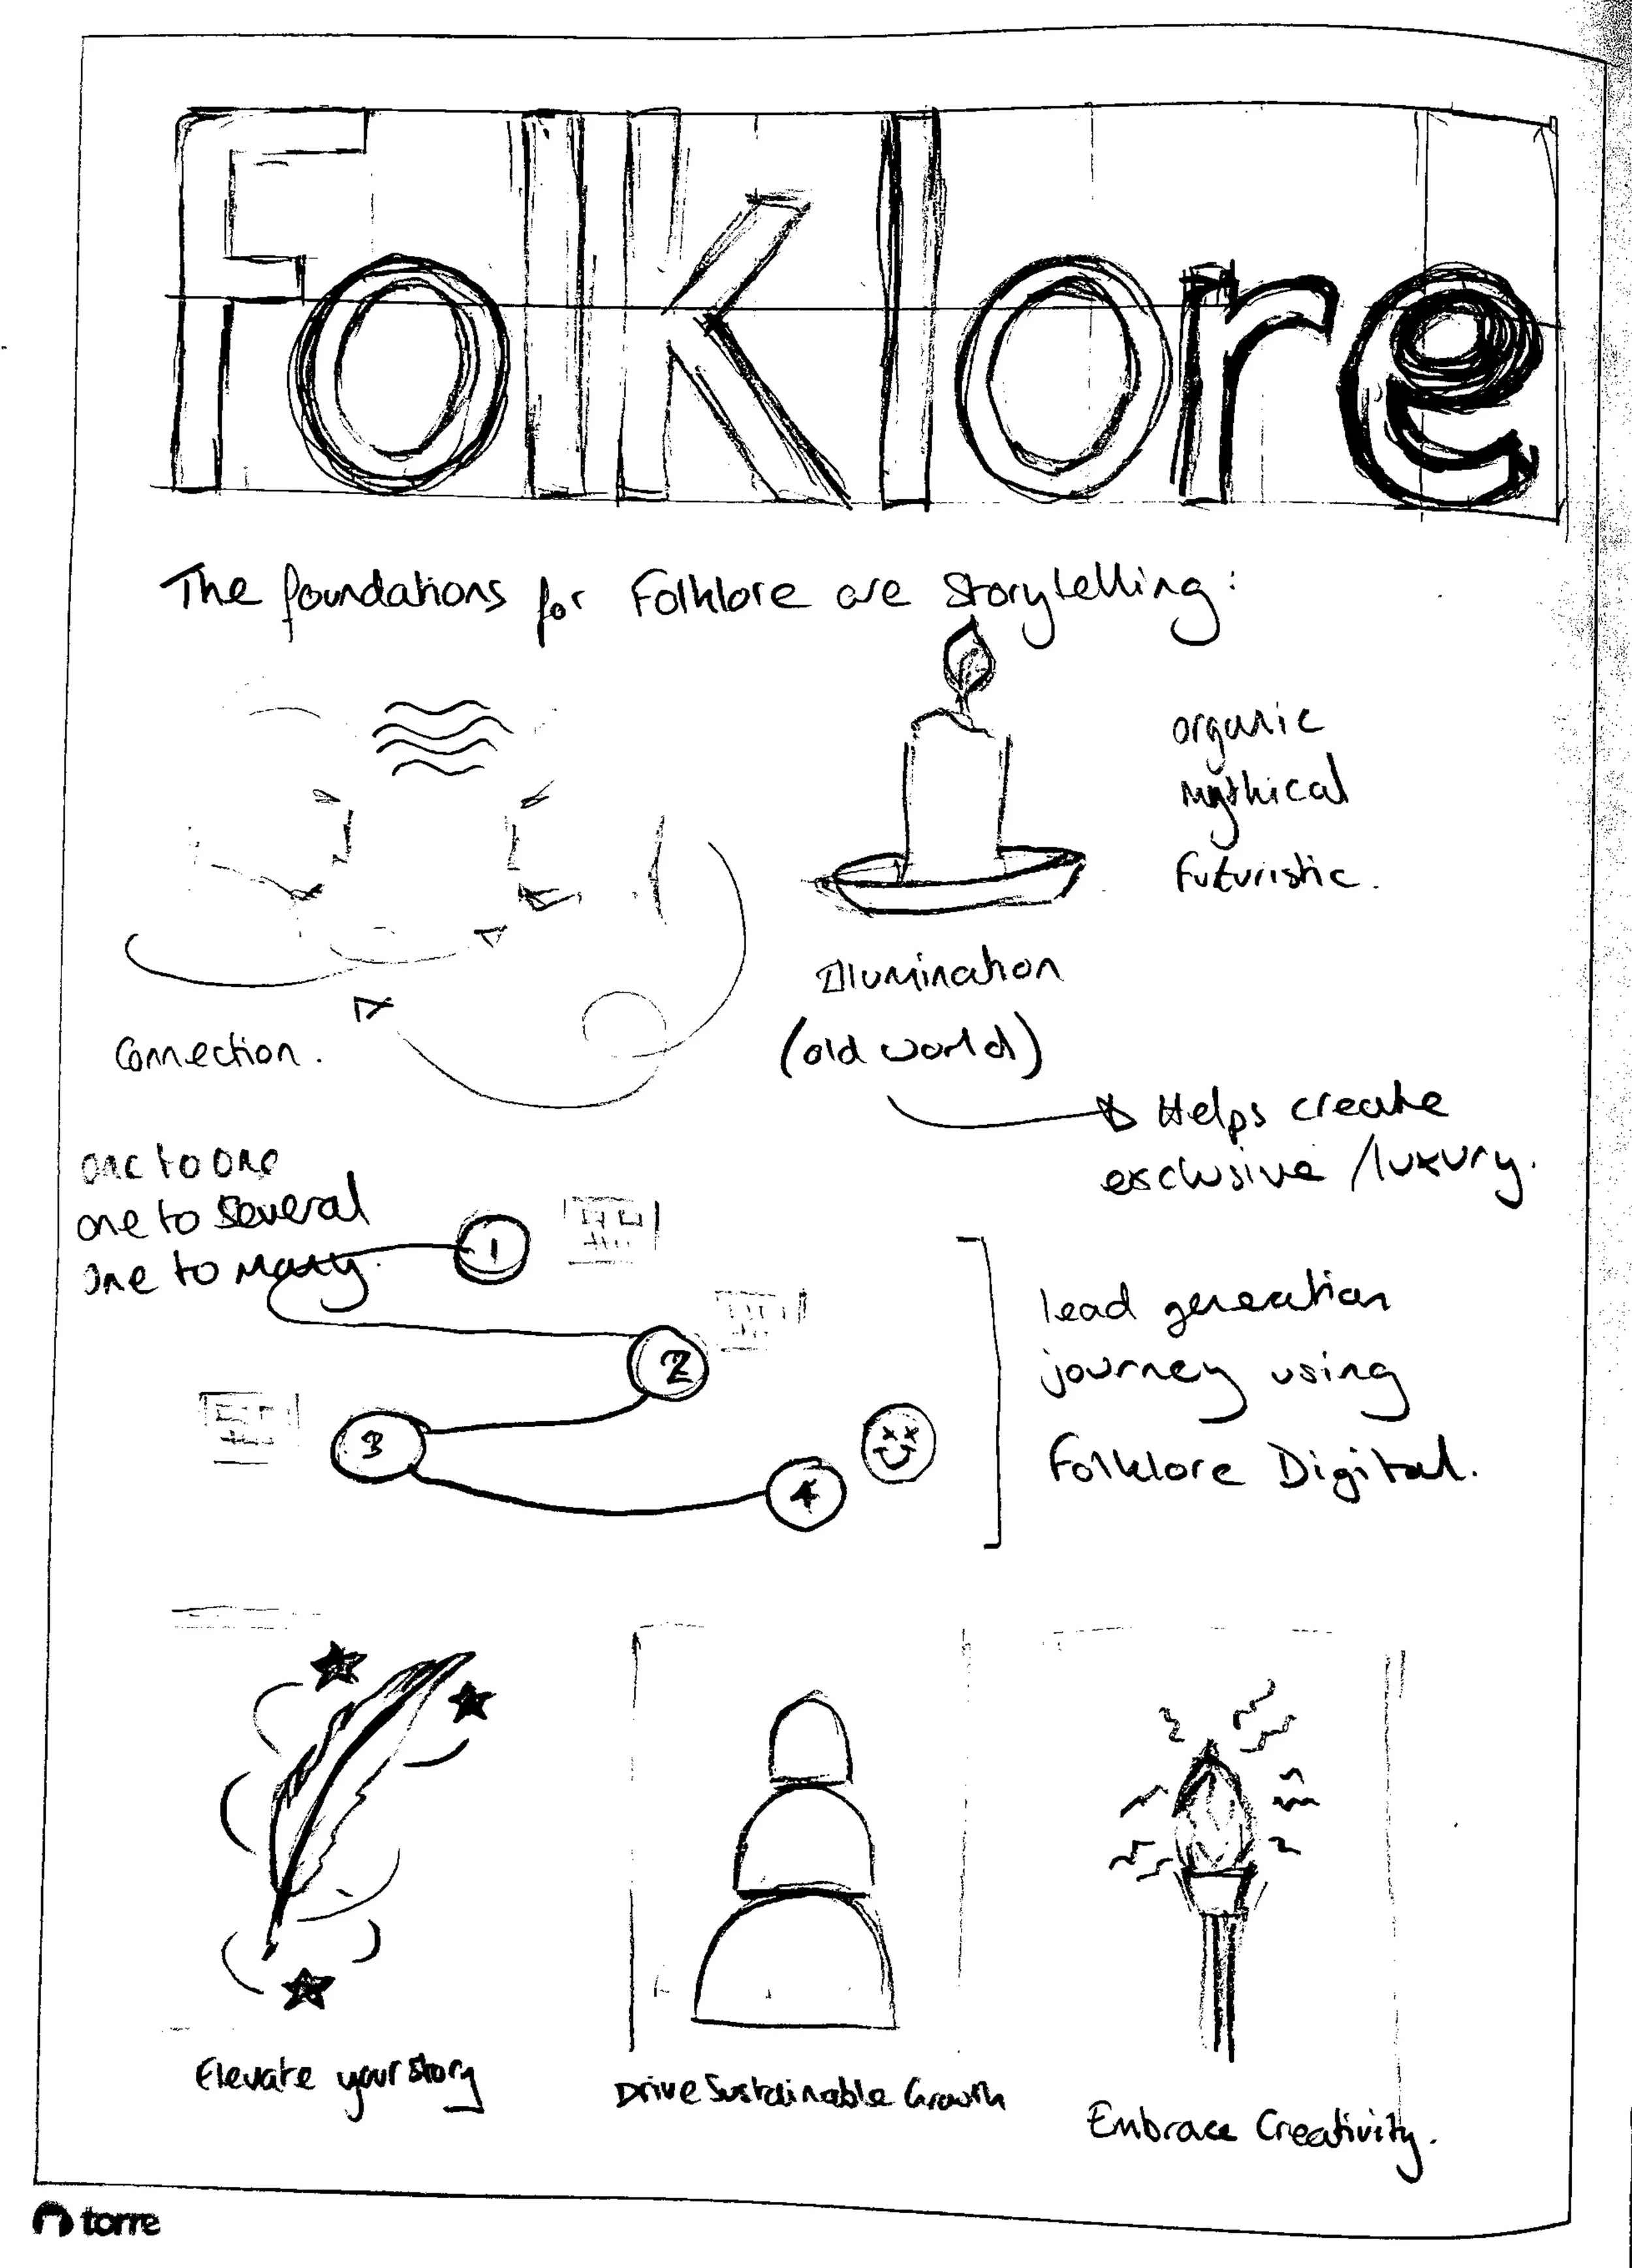 Folklore
The foundations for Folklore are storytelling:
organic
mythical
futuristic.
Illumination
(old world)
Connection.
Helps create
exclusive/luxury.
one to one
one to several
one to many.
1
2
3
4
lead generation
journey using
Folklore Digital.
Elevate your story
Drive Sustainable Growth
Embrace Creativity.
torre